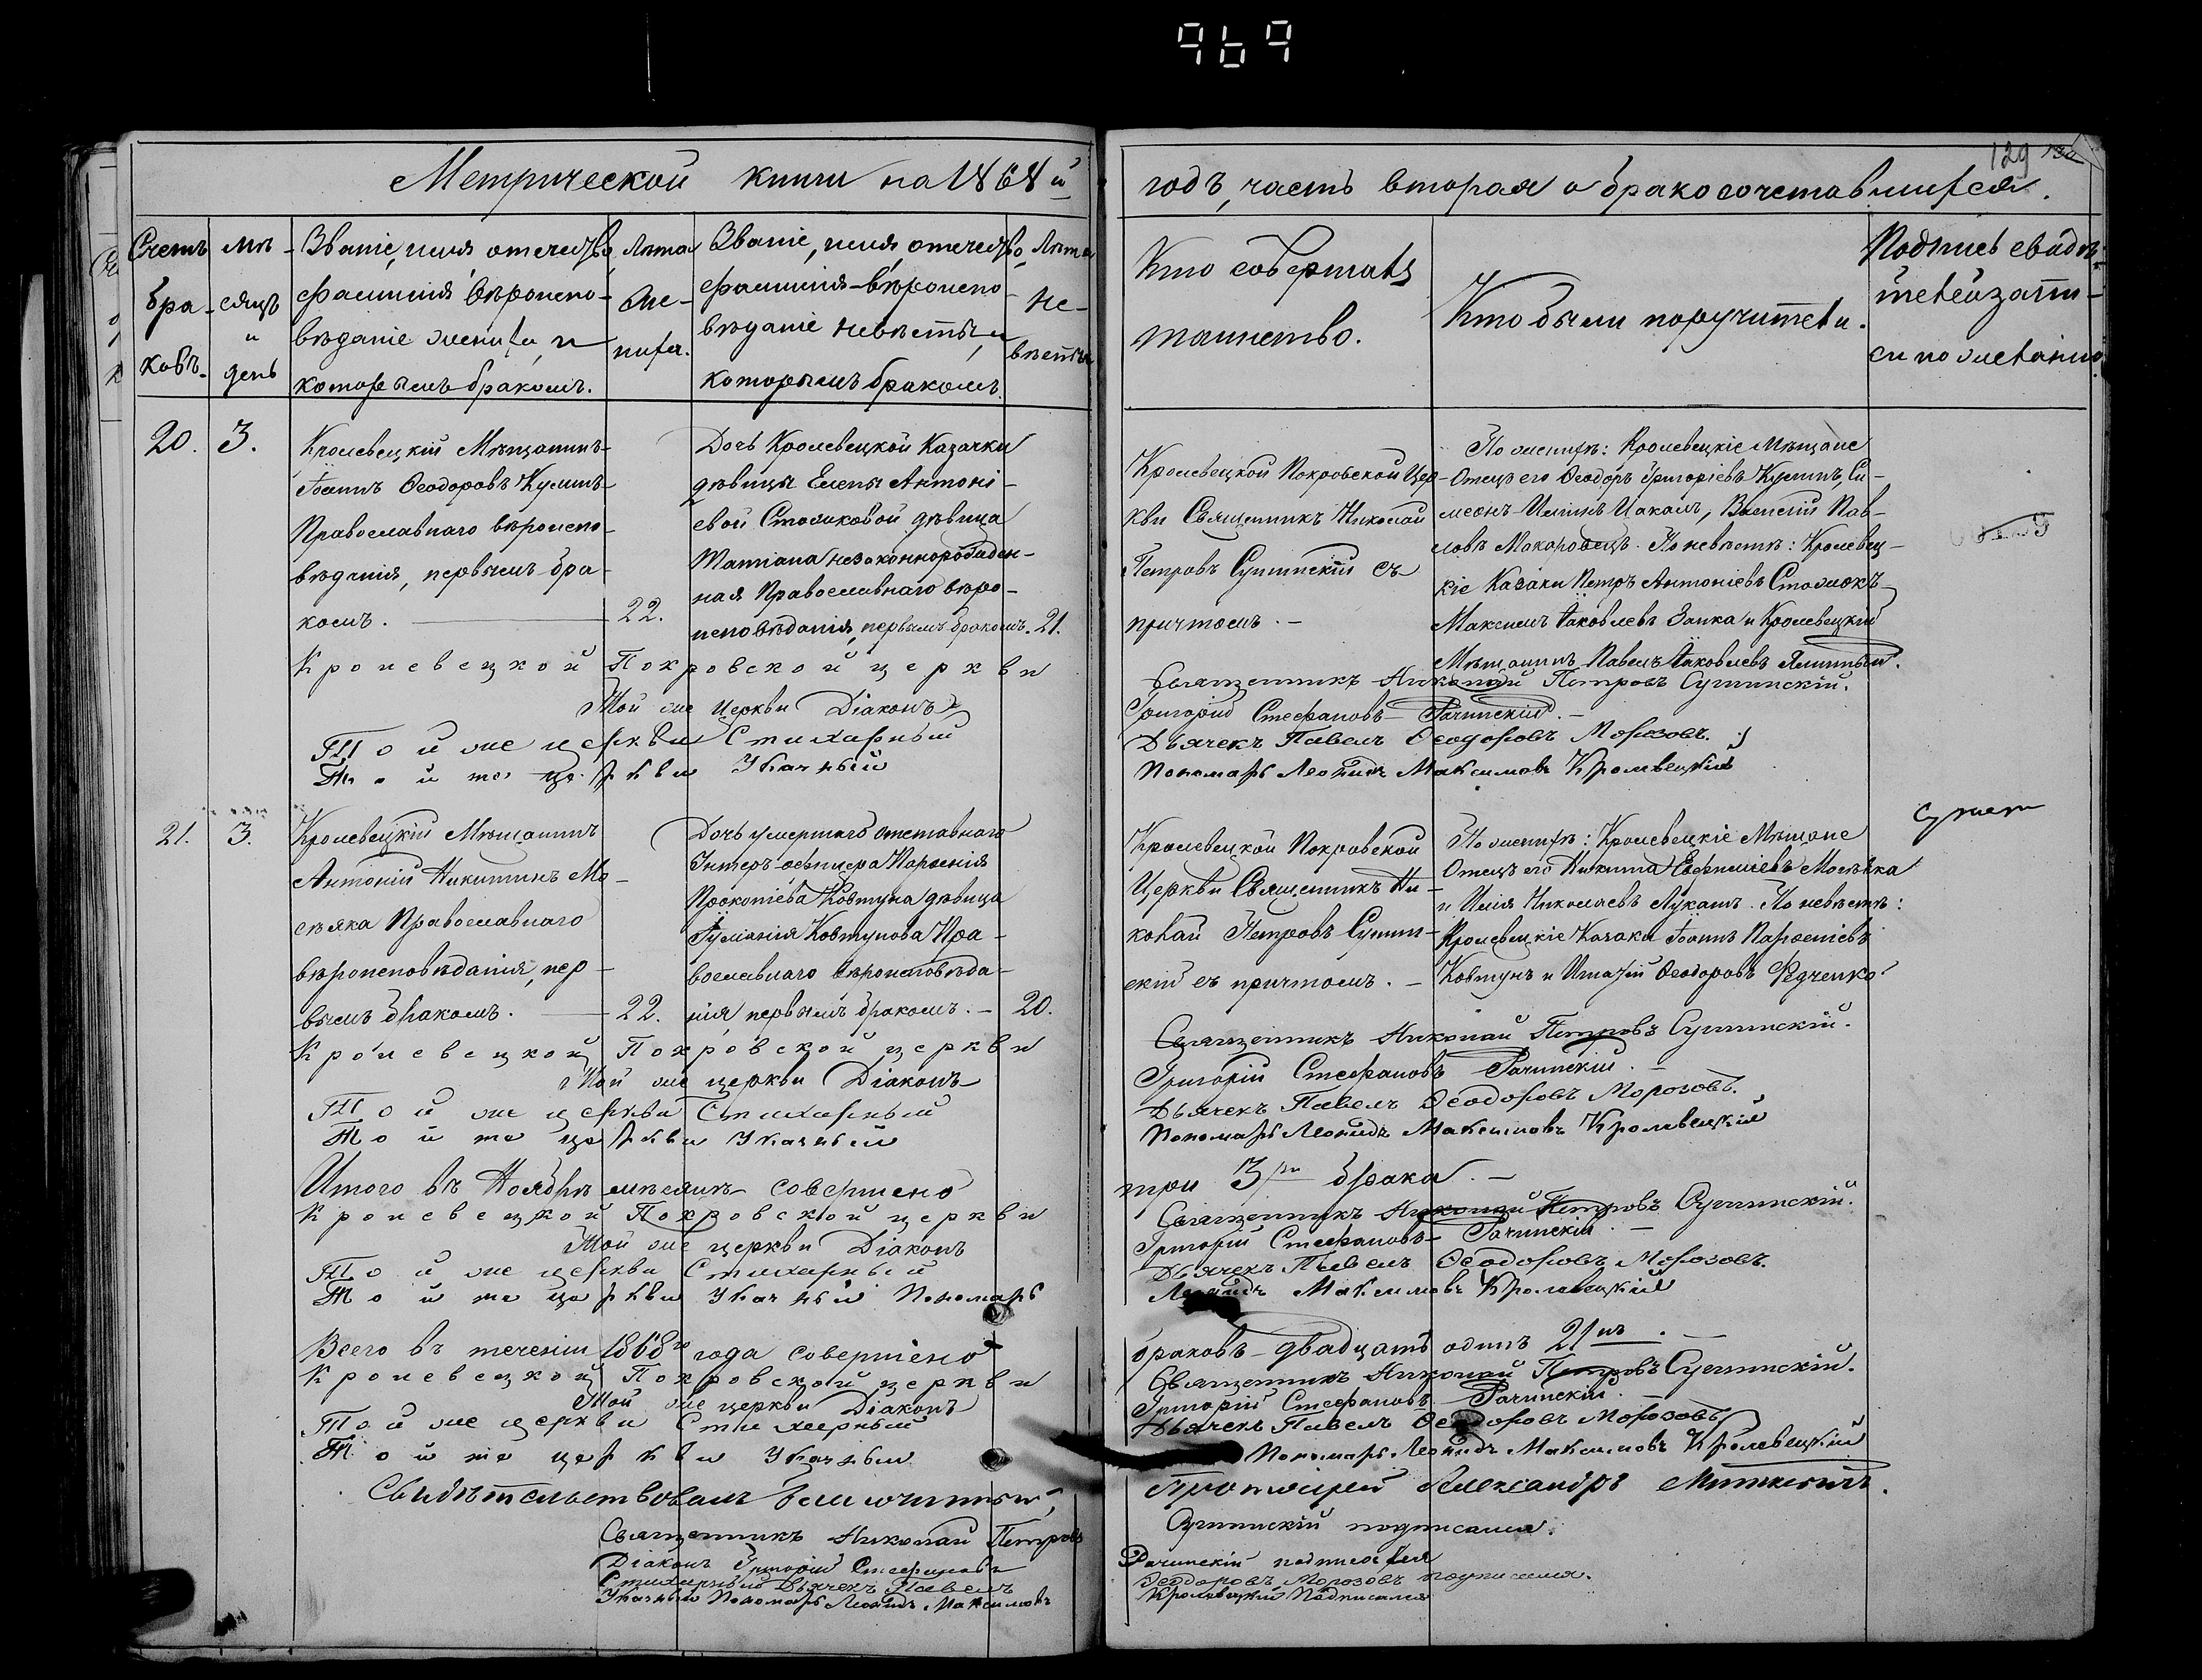 969
129
Метрической книги на 1868й годъ, часть вторая о бракосочетавшихся.
Счетъ браковъ.
Мѣсяцъ и день
Званіе, имя, отечество, фамилія, вѣроисповѣданіе жениха, и которымъ бракомъ.
Лѣта жениха.
Званіе, имя, отечество, фамилія вѣроисповѣданіе невѣсты, и которымъ бракомъ.
Лѣта невѣсты
Кто совершалъ таинство.
Кто были поручители.
Подпись свидѣтелей записи по желанію.
20.
3.
Кролевецкій Мѣщанинъ
Іоаннъ Ѳеодоровъ
Православнаго вѣроиспо-
вѣданія, первымъ бра-
комъ.
22.
Дочь Кролевецкой Казачки
дѣвицы Елены Антоні-
евой Стожковой дѣвица
Татіана незаконнорожден-
ная Православнаго вѣро-
исповѣданія, первымъ бракомъ. 21.
Кролевецкой Покровской Цер-
кви Священникъ Николай
Петровъ Сушинскій съ
причтомъ. —
По женихѣ: Кролевецкіе Мѣщане
Отецъ его Ѳеодоръ Григоріевъ Си-
меонъ Василій Пав-
ловъ Макаровецъ. По невѣстѣ: Кролевец-
кіе Казаки Петръ Антоніевъ
Максимъ Іаковлевъ Заика и Кролевецкій
Мѣщанинъ Павелъ Іаковлевъ
Кролевецкой Покровской церкви Священникъ Николай Петровъ Сушинскій.
Той же церкви Діаконъ Григорій Стефановъ Рачинскій. —
Той же церкви Стихарный Дьячекъ Павелъ Ѳеодоровъ Морозовъ.
Той же церкви Указный Пономарь Леонидъ Максимовъ Кролевецкій
21.
3.
Кролевецкій Мѣщанинъ
Антоній Никитинъ Мо-
сѣяка Православнаго
вѣроисповѣданія, пер-
вымъ бракомъ.
22.
Дочь умершаго отставнаго
Унтеръ-офицера Парѳенія
Прокопіева Ковтуна дѣвица
Іуліанія Ковтунова Пра-
вославнаго вѣроисповѣда-
нія, первымъ бракомъ. — 20.
Кролевецкой Покровской
Церкви Священникъ Ни-
колай Петровъ Сушин-
скій съ причтомъ. —
По женихѣ: Кролевецкіе Мѣщане
Отецъ его Никита Евфиміевъ Мосѣяка
и Илія Николаевъ Лукашъ. По невѣстѣ:
Кролевецкіе Казаки Іоаннъ Парѳеніевъ
Ковтунъ и Игнатій Ѳеодоровъ Федченко.
Кролевецкой Покровской церкви Священникъ Николай Петровъ Сушинскій.
Той же церкви Діаконъ Григорій Стефановъ Рачинскій. —
Той же церкви Стихарный Дьячекъ Павелъ Ѳеодоровъ Морозовъ.
Той же церкви Указный Пономарь Леонидъ Максимовъ Кролевецкій
Итого въ Ноябрѣ мѣсяцѣ совершено три 3ри брака. —
Кролевецкой Покровской церкви Священникъ Николай Петровъ Сушинскій.
Той же церкви Діаконъ Григорій Стефановъ Рачинскій. —
Той же церкви Стихарный Дьячекъ Павелъ Ѳеодоровъ Морозовъ.
Той же церкви Указный Пономарь Леонидъ Максимовъ Кролевецкій
Всего въ теченіи 1868го года совершено браковъ двадцать одинъ 21нъ. —
Кролевецкой Покровской церкви Священникъ Николай Петровъ Сушинскій.
Той же церкви Діаконъ Григорій Стефановъ Рачинскій.
Той же церкви Стихарный Дьячекъ Павелъ Ѳеодоровъ Морозовъ
Той же церкви Указный Пономарь Леонидъ Максимовъ Кролевецкій
Свидѣтельствовалъ Благочинный, Протоіерей Александръ
Священникъ Николай Петровъ Сушинскій подписался.
Діаконъ Григорій Стефановъ Рачинскій подписался
Стихарный Дьячекъ Павелъ Ѳеодоровъ Морозовъ подписался.
Указный Пономарь Леонидъ Максимовъ Кролевецкій Подписался